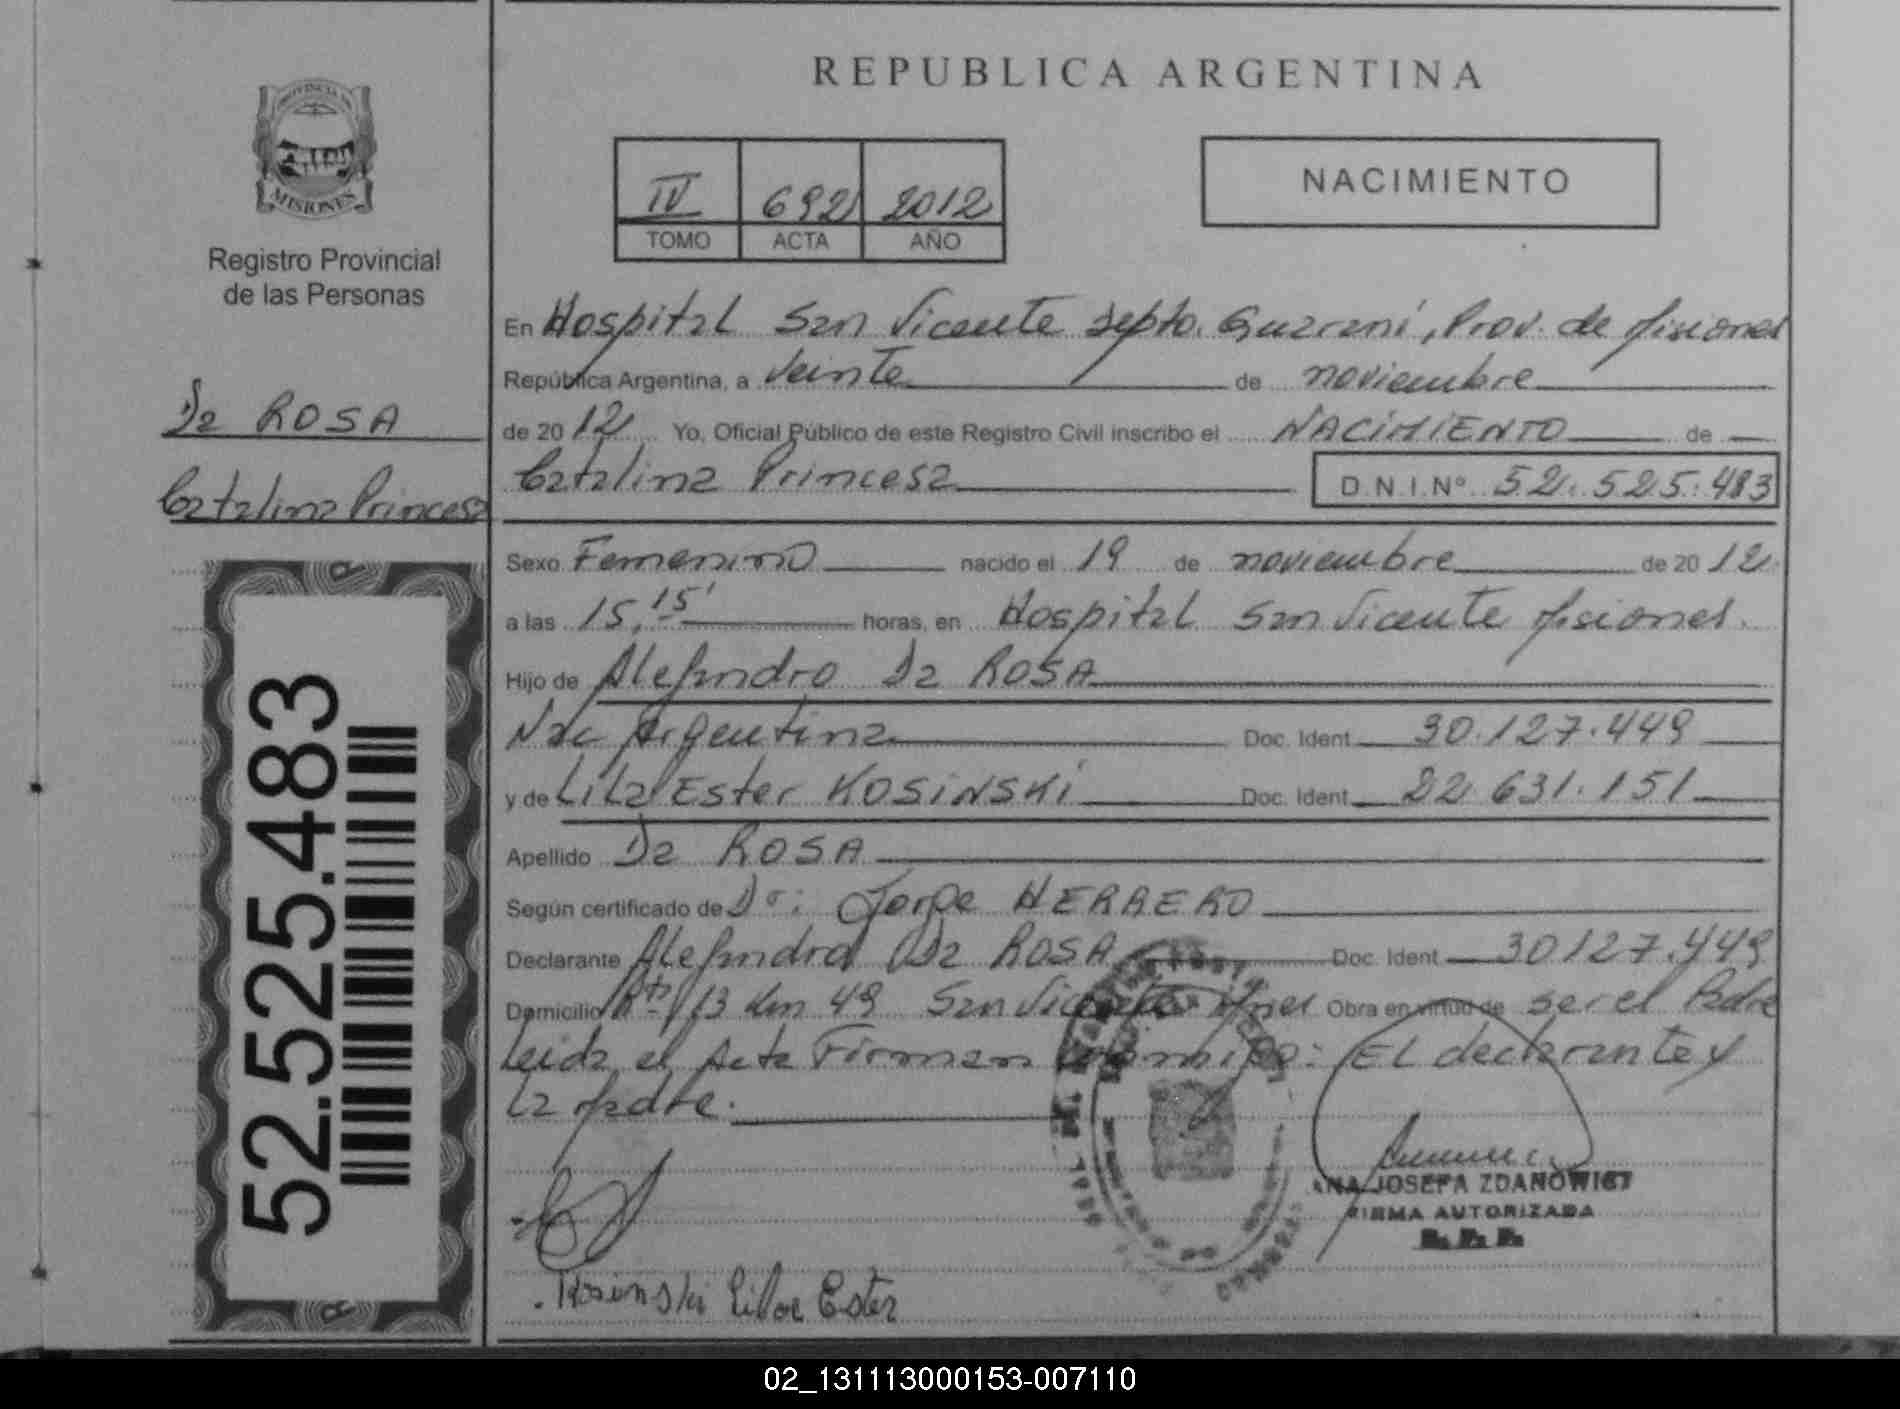 PROVINCIA DE
MISIONES
Registro Provincial
de las Personas
Da ROSA
Catalina Princesa
52.525.483
REPUBLICA ARGENTINA
IV 692 2012
TOMO ACTA AÑO
NACIMIENTO
En Hospital San Vicente Depto. Guaraní, Prov. de Misiones
República Argentina, a veinte de noviembre
de 2012 Yo, Oficial Público de este Registro Civil inscribo el NACIMIENTO de
Catalina Princesa D.N.I.Nº 52.525.483
Sexo Femenino nacido el 19 de noviembre de 2012
a las 15,15' horas, en Hospital San Vicente Misiones.
Hijo de Alejandro Da ROSA
Nac Argentina Doc. Ident. 30.127.449
y de LiLa Ester KOSiNSKi Doc. Ident. 22.631.151
Apellido Da ROSA
Según certificado de Dr: Jorge HERRERO
Declarante Alejandro Da ROSA Doc. Ident 30127.449
Domicilio Rta 13 km 49 San Vicente Mnes Obra en virtud de ser el Padre
Leida el Acta Firman conmigo: EL declarante y
La Madre.
ANA JOSEFA ZDANOWICZ
FIRMA AUTORIZADA
R. P. P.
Kosinski Lila Ester
02_131113000153-007110